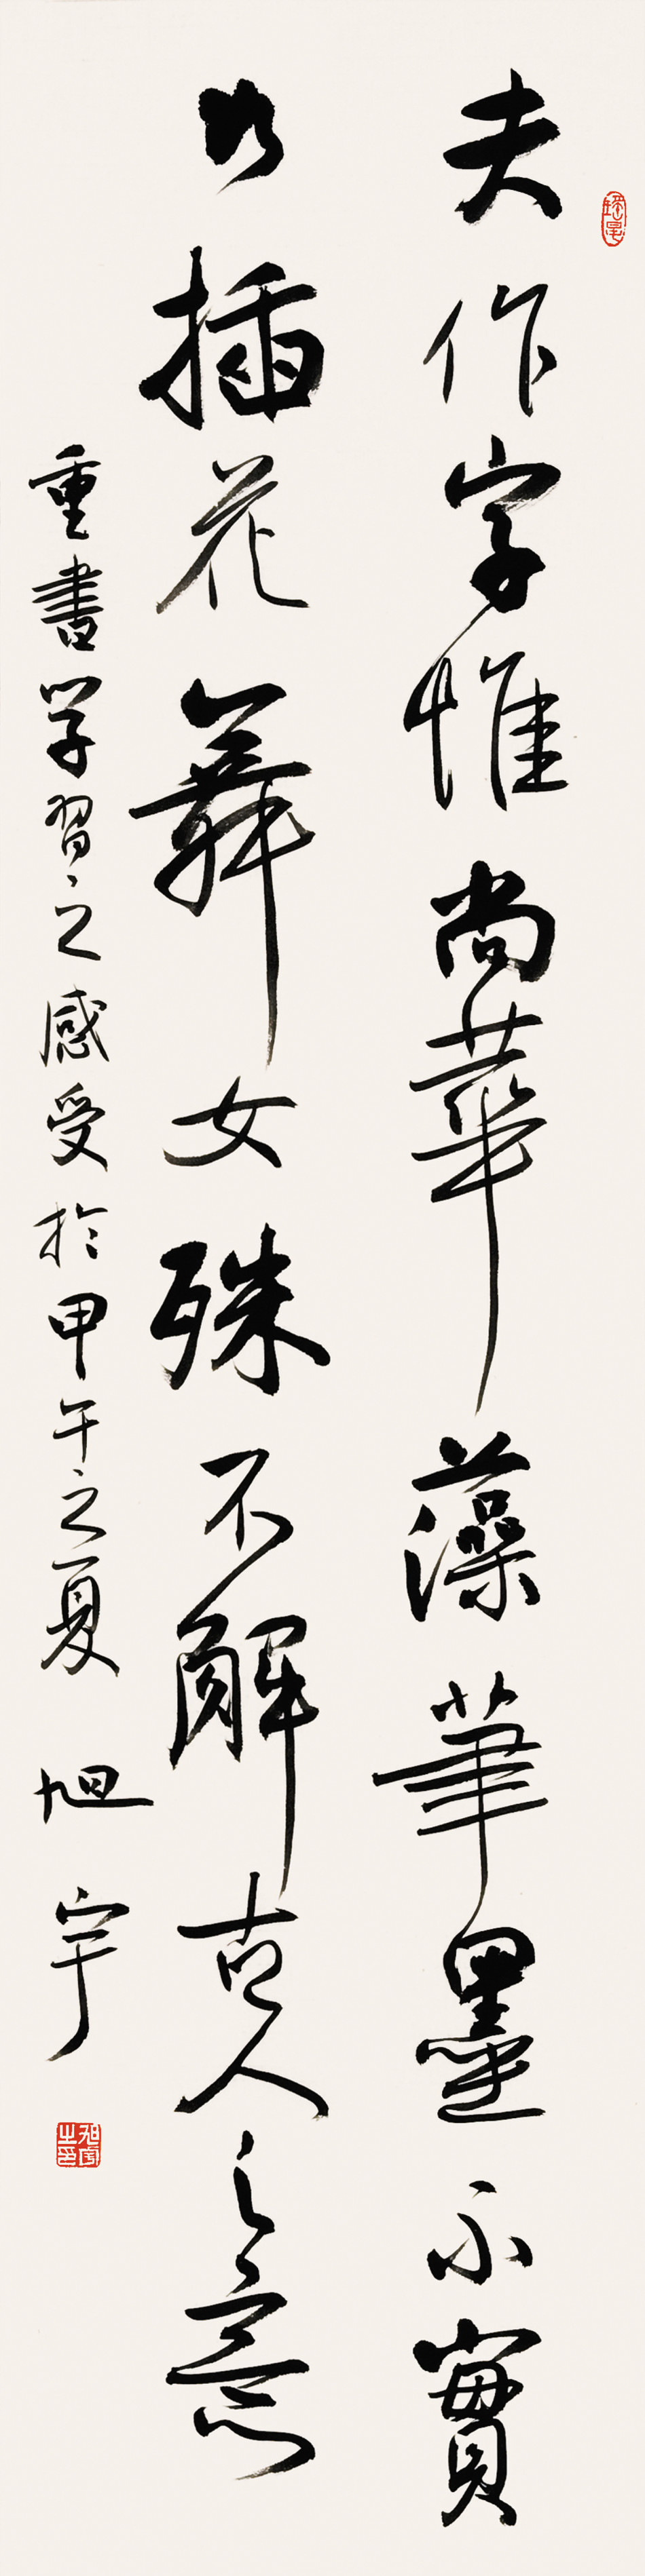 夫作字惟尚華藻筆墨不實
如插花舞女殊不解古人之意
重書学習之感受於甲午之夏 旭宇
旭宇之印